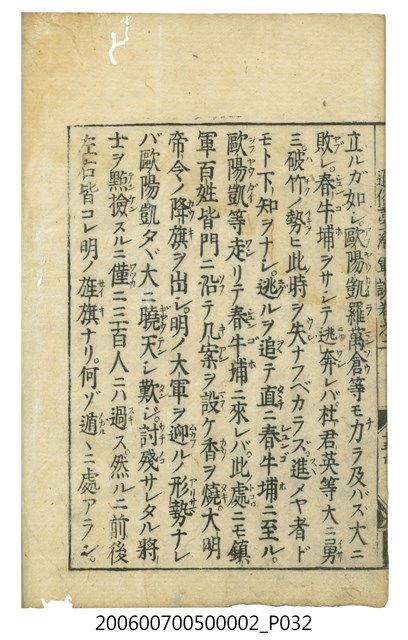 立ルガ如シ。歐陽凱羅萬倉等モ力ラ及バズ大ニ
敗レ。春牛埔ヲサシテ逃奔レバ。杜君英等大ニ勇
ミ。破竹ノ勢ヒ此時ヲ失ナフベカラズ進メヤ者ド
モト下知ヲナシ。逃ルヲ追テ直ニ春牛埔ニ至ル。
歐陽凱等走リテ春牛埔ニ來レバ。此處ニモ鎮
軍百姓皆門ニ沿テ几案ヲ設ケ香ヲ燒。大明
帝令ノ降旗ヲ出シ。明ノ大軍ヲ迎ルノ形勢ナレ
バ歐陽凱タヾ大ニ曉天シ歎ジ。討殘サレタル將
士ヲ㸃撿スルニ僅ニ三百人ニハ過ズ。然ルニ前後
左右皆コレ明ノ旌旗ナリ。何ゾ遁ルヽニ處アラン。
200600700500002_P032